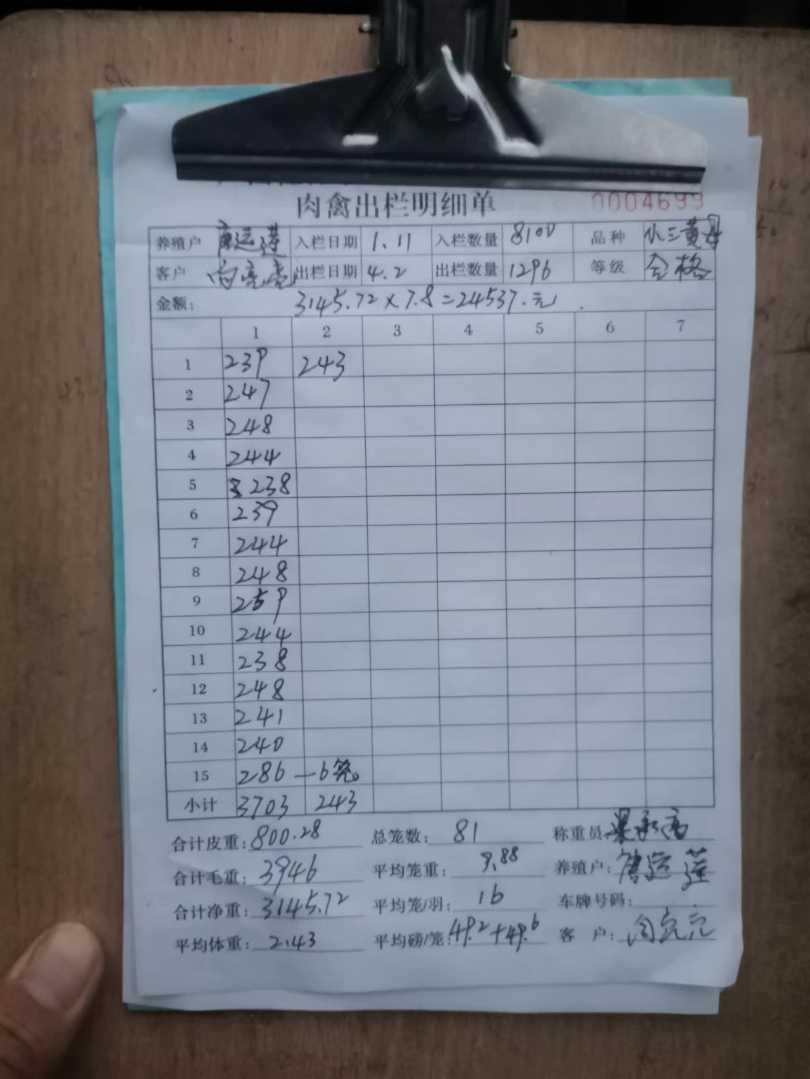 肉禽出栏明细单 0004699
养殖户 唐运莲 入栏日期 1.11 入栏数量 8100 品种 小三黄母
客户 出栏日期 4.2 出栏数量 1296 等级 合格
金额: 3145.72×7.8=24537.元
1 2 3 4 5 6 7
1 239 243
2 247
3 248
4 244
5 238
6 239
7 244
8 248
9 259
10 244
11 238
12 248
13 241
14 240
15 286 —6笼。
小计 3703 243
合计皮重: 800.28 总笼数: 81 称重员
合计毛重: 3946 平均笼重: 9.88 养殖户: 唐运莲
合计净重: 3145.72 平均笼/羽: 16 车牌号码:
平均体重: 2.43 平均磅/笼: 49.2+49.6 客户: